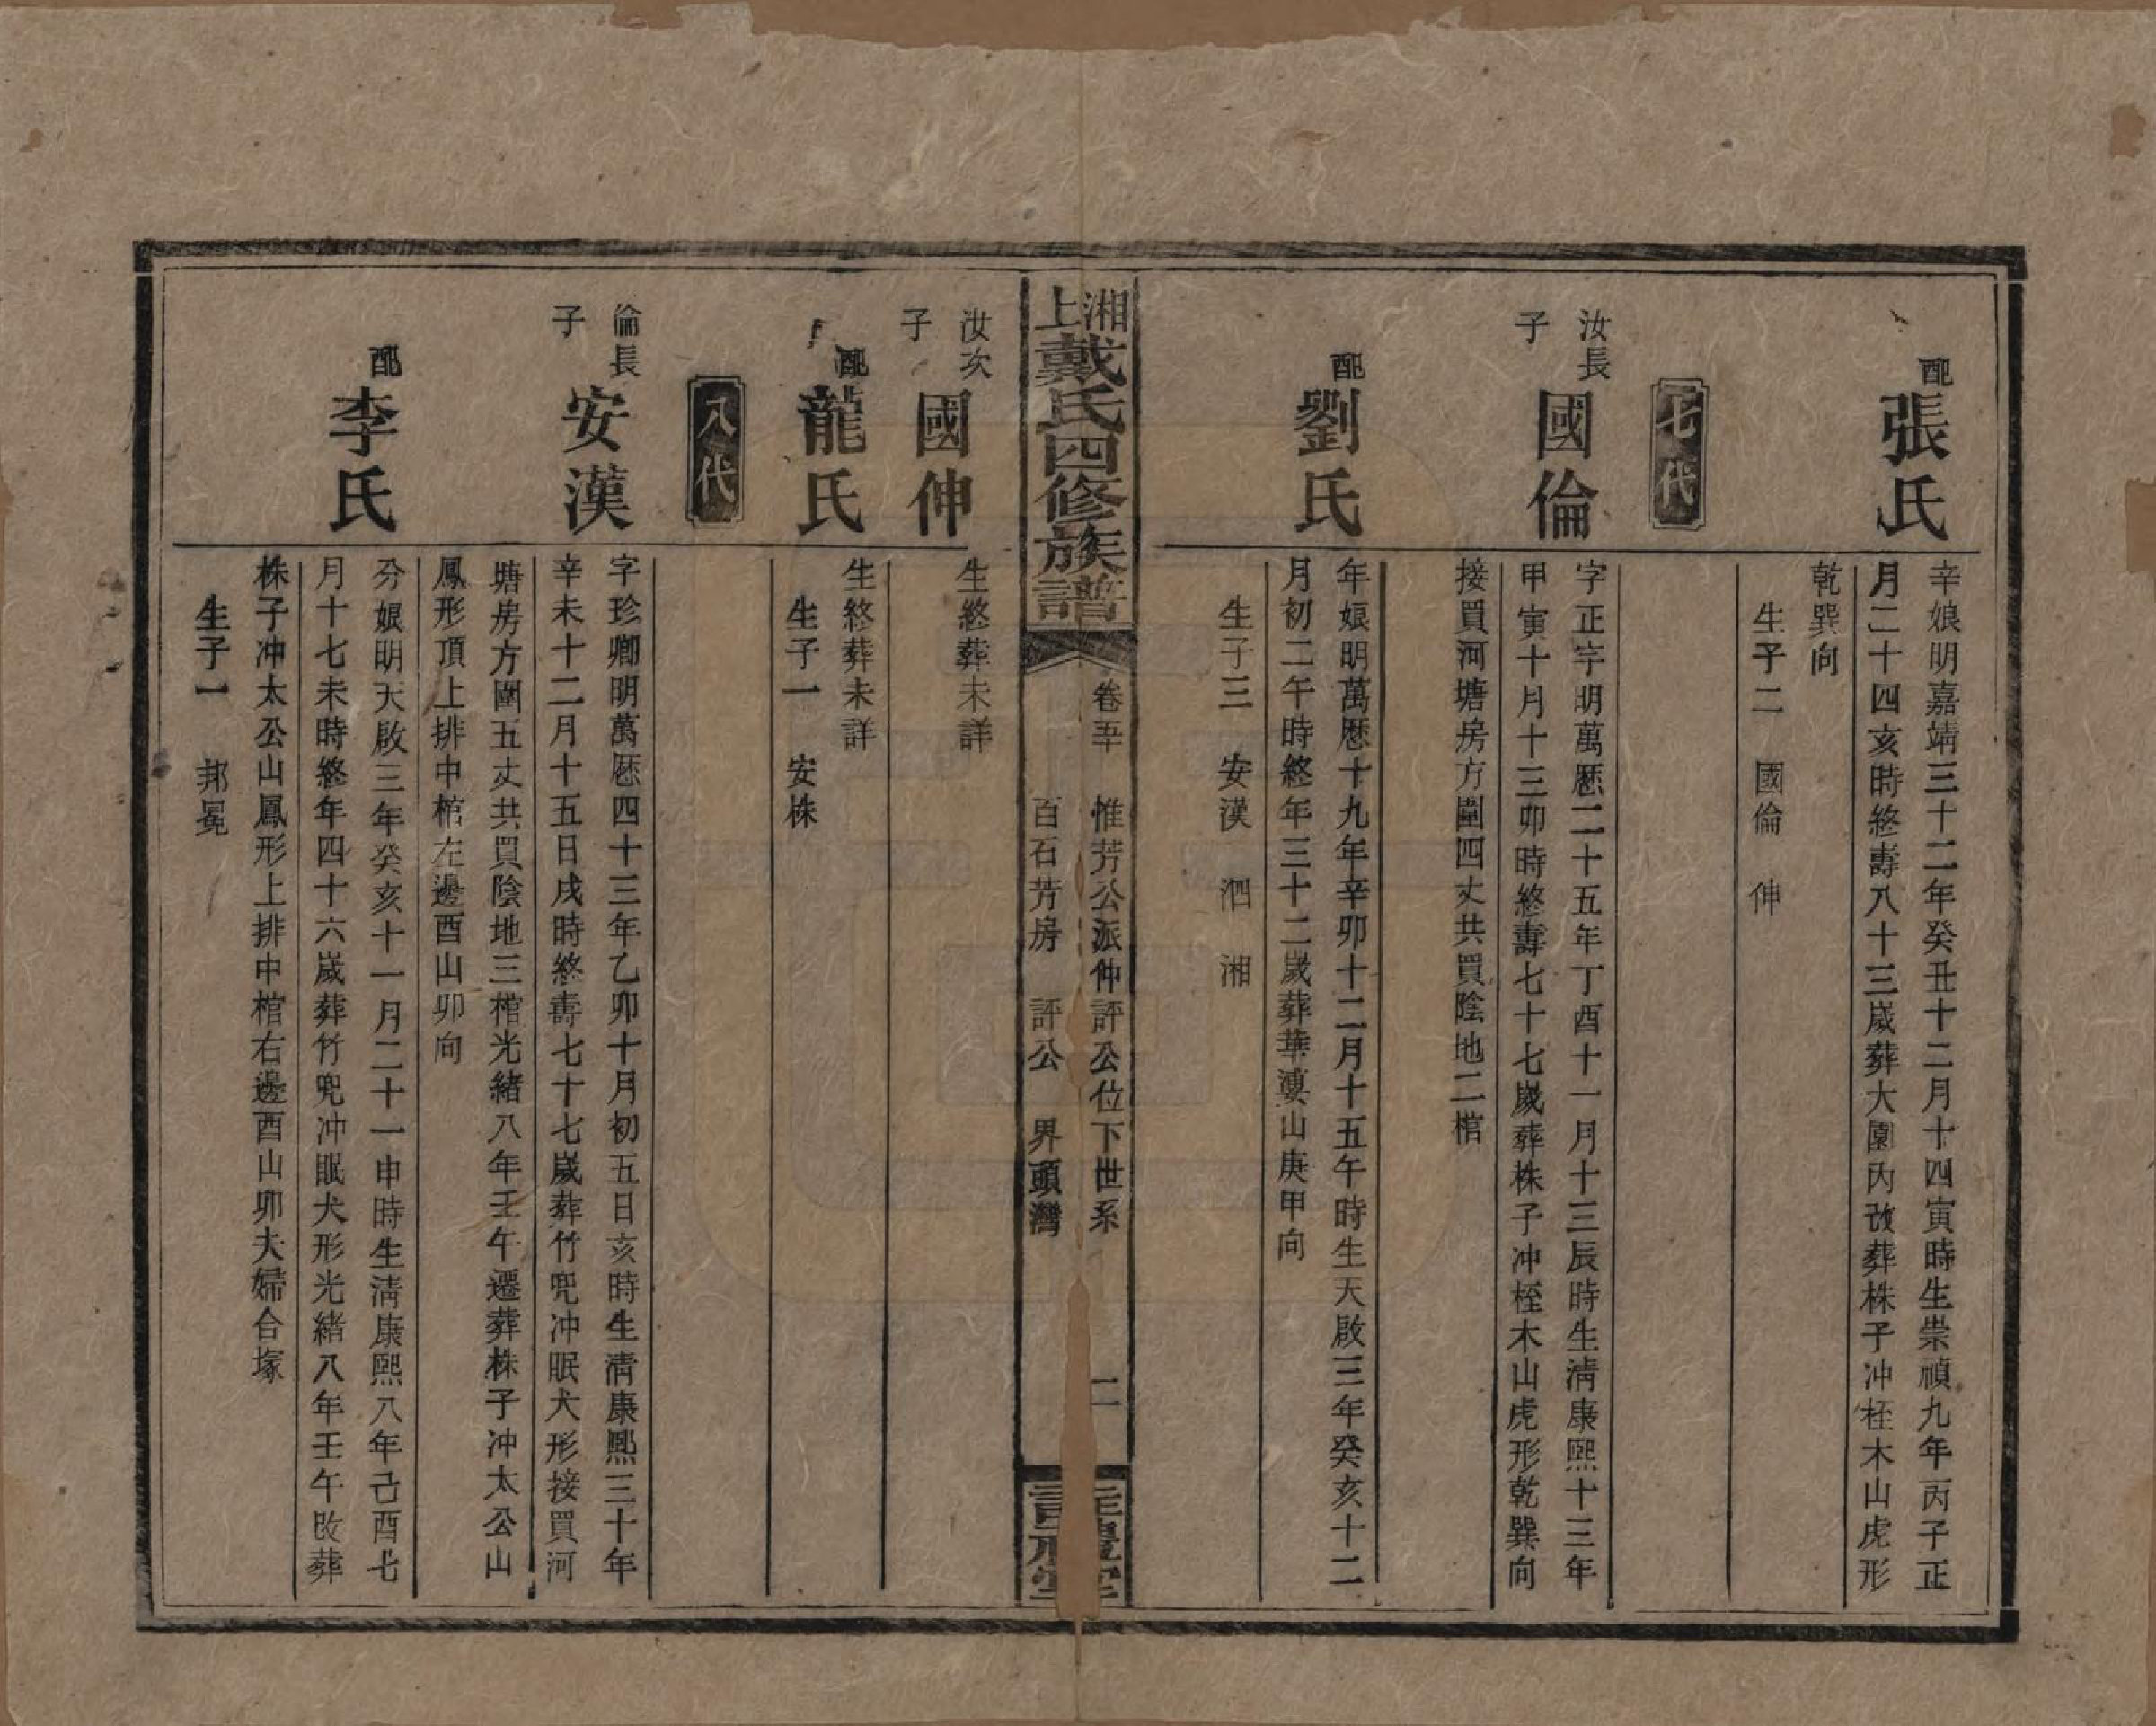 配
張氏
辛娘明嘉靖三十二年癸丑十二月十四寅時生崇禎九年丙子正
月二十四亥時終壽八十三歲葬大園內改葬株子冲桎木山虎形
乾巽向
生子二 國倫 伸
七代
汝長
子
國倫
字正宇明萬厯二十五年丁酉十一月十三辰時生清康熙十三年
甲寅十月十三卯時終壽七十七歲葬株子冲桎木山虎形乾巽向
接買河塘房方圍四丈共買陰地二棺
配
劉氏
年娘明萬厯十九年辛卯十二月十五午時生天啟三年癸亥十二
月初二午時終年三十二歲葬華山庚甲向
生子三 安漢 泗 湘
湘上戴氏四修族譜
卷五
惟芳公派仲評公位下世系
百石芳房 評公 界頭灣
二
禮堂
汝次
子
國伸
生終葬未詳
配
龍氏
生終葬未詳
生子一 安株
八代
倫長
子
安漢
字珍卿明萬厯四十三年乙卯十月初五日亥時生清康熙三十年
辛未十二月十五日戌時終壽七十七歲葬竹兜冲眠犬形接買河
塘房方圍五丈共買陰地三棺光緒八年壬午遷葬株子冲太公山
鳳形頂上排中棺左邊酉山卯向
配
李氏
分娘明天啟三年癸亥十一月二十一申時生清康熙八年己酉七
月十七未時終年四十六歲葬竹兜冲眠犬形光緒八年壬午改葬
株子冲太公山鳳形上排中棺右邊酉山卯夫婦合塚
生子一 邦冕